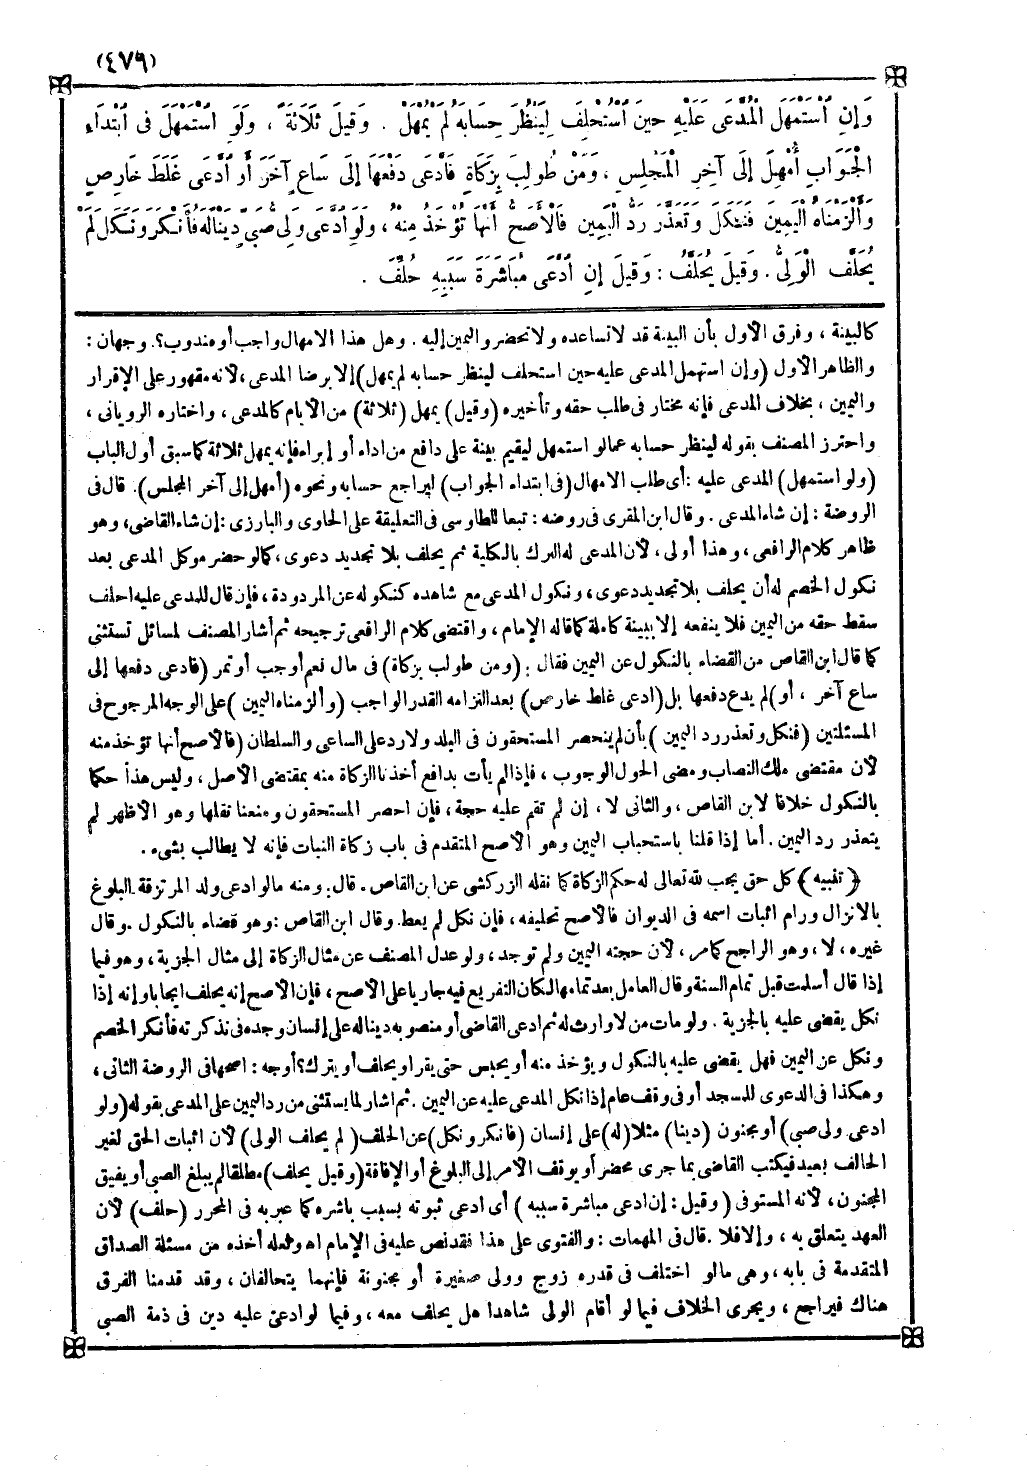 (٤٧٩)
وَإِنِ ٱسْتَمْهَلَ الْمُدَّعَى عَلَيْهِ حِينَ ٱسْتُحْلِفَ لِيَنْظُرَ حِسَابَهُ لَمْ يُمْهَلْ . وَقِيلَ ثَلَاثَةً ، وَلَوِ ٱسْتَمْهَلَ فِى ٱبْتِدَاءِ
الْجَوَابِ أُمْهِلَ إِلَى آخِرِ الْمَجْلِسِ ، وَمَنْ طُولِبَ بِزَكَاةٍ فَٱدَّعَى دَفْعَهَا إِلَى سَاعٍ آخَرَ أَوِ ٱدَّعَى غَلَطَ خَارِصٍ
وَأَلْزَمْنَاهُ الْيَمِينَ فَنَكَلَ وَتَعَذَّرَ رَدُّ الْيَمِينِ فَالْأَصَحُّ أَنَّهَا تُؤْخَذُ مِنْهُ ، وَلَوِ ٱدَّعَى وَلِىُّ صَبِىٍّ دَيْنًا لَهُ فَأَنْكَرَ وَنَكَلَ لَمْ
يُحَلَّفِ الْوَلِىُّ . وَقِيلَ يُحَلَّفُ : وَقِيلَ إِنِ ٱدَّعَى مُبَاشَرَةَ سَبَبِهِ حُلِّفَ .
كالبينة ، وفرق الأول بأن البينة قد لا تساعده ولا تحضر واليمين إليه . وهل هذا الامهال واجب أو مندوب؟. وجهان :
والظاهر الأول (وإن استمهل المدعى عليه حين استحلف لينظر حسابه لم يمهل) إلا برضا المدعى ، لأنه مقهور على الإقرار
واليمين ، بخلاف المدعى فإنه مختار فى طلب حقه وتأخيره (وقيل) يمهل (ثلاثة) من الأيام كالمدعى ، واختاره الرويانى ،
واحترز المصنف بقوله لينظر حسابه عما لو استمهل ليقيم بينة على دافع من اداء أو إبراء فإنه يمهل ثلاثة كما سبق أول الباب
(ولو استمهل) المدعى عليه : أى طلب الامهال (فى ابتداء الجواب) ليراجع حسابه ونحوه (أمهل إلى آخر المجلس) . قال فى
الروضة : إن شاء المدعى . وقال ابن المقرى فى روضه : تبعا للطاوسى فى التعليقة على الحاوى والبارزى : إن شاء القاضى، وهو
ظاهر كلام الرافعى ، وهذا أولى ، لأن المدعى له الترك بالكلية ثم يحلف بلا تجديد دعوى ، كما لو حضر موكل المدعى بعد
نكول الخصم له أن يحلف بلا تجديد دعوى ، ونكول المدعى مع شاهده كنكوله عن المردودة ، فإن قال للمدعى عليه احلف
سقط حقه من اليمين فلا ينفعه إلا ببينة كاملة كما قاله الإمام ، واقتضى كلام الرافعى ترجيحه ثم أشار المصنف لمسائل تستثنى
كما قال ابن القاص من القضاء بالنكول عن اليمين فقال : (ومن طولب بزكاة) فى مال نعم أو حب أو تمر (فادعى دفعها إلى
ساع آخر ، أو) لم يدع دفعها بل (ادعى غلط خارص) بعد التزامه القدر الواجب (وألزمناه اليمين) على الوجه المرجوح فى
المسئلتين (فنكل وتعذر رد اليمين) بأن لم ينحصر المستحقون فى البلد ولا رد على الساعى والسلطان (فالأصح أنها تؤخذ منه
لأن مقتضى ملك النصاب ومضى الحول الوجوب ، فإذا لم يأت بدافع أخذنا الزكاة منه بمقتضى الأصل ، وليس هذا حكما
بالنكول خلافا لابن القاص ، والثانى لا ، إن لم تقم عليه حجة ، فإن احصر المستحقون ومنعنا نقلها وهو الأظهر لم
يتعذر رد اليمين . أما إذا قلنا باستحباب اليمين وهو الأصح المتقدم فى باب زكاة النبات فإنه لا يطالب بشىء .
(تنبيه) كل حق يجب لله تعالى له حكم الزكاة كما نقله الزركشى عن ابن القاص . قال : ومنه ما لو ادعى ولد المرتزقة البلوغ
بالانزال ورام اثبات اسمه فى الديوان فالأصح تحليفه ، فإن نكل لم يعط . وقال ابن القاص : وهو قضاء بالنكول . وقال
غيره ، لا ، وهو الراجح كما مر ، لأن حجته اليمين ولم توجد ، ولو عدل المصنف عن مثال الزكاة إلى مثال الجزية ، وهو فيما
إذا قال أسلمت قبل تمام السنة وقال العامل بعد تمامها لكان التفريع فيه جاريا على الأصح ، فإن الأصح إنه يحلف ايجابا وإنه إذا
نكل يقضى عليه بالجزية . ولو مات من لا وارث له ثم ادعى القاضى أو منصوبه دينا له على إنسان وجده فى تذكرته فأنكر الخصم
ونكل عن اليمين فهل يقضى عليه بالنكول ويؤخذ منه أو يحبس حتى يقر أو يحلف أو يترك؟ أوجه : اصحها فى الروضة الثانى ،
وهكذا فى الدعوى للمسجد أو فى وقف عام إذا نكل المدعى عليه عن اليمين . ثم اشار لما يستثنى من رد اليمين على المدعى بقوله (ولو
ادعى ولى صبى) أو مجنون (دينا) مثلا (له) على إنسان (فانكر ونكل) عن الحلف (لم يحلف الولى) لأن اثبات الحق لغير
الحالف بعيد فيكتب القاضى بما جرى محضر أو يوقف الأمر إلى البلوغ أو الإفاقة (وقيل يحلف) مطلقا لم يبلغ الصبى أو يفيق
المجنون ، لأنه المستوفى (وقيل : إن ادعى مباشرة سببه) أى ادعى ثبوته بسبب باشره كما عبر به فى المحرر (حلف) لأن
العهد يتعلق به ، وإلا فلا . قال فى المهمات : والفتوى على هذا فقد نص عليه فى الإمام اه ولعله أخذه من مسئلة الصداق
المتقدمة فى بابه ، وهى ما لو اختلف فى قدره زوج وولى صغيرة أو مجنونة فإنهما يتحالفان ، وقد قدمنا الفرق
هناك فيراجع ، ويجرى الخلاف فيما لو أقام الولى شاهدا هل يحلف معه ، وفيما لو ادعى عليه دين فى ذمة الصبى